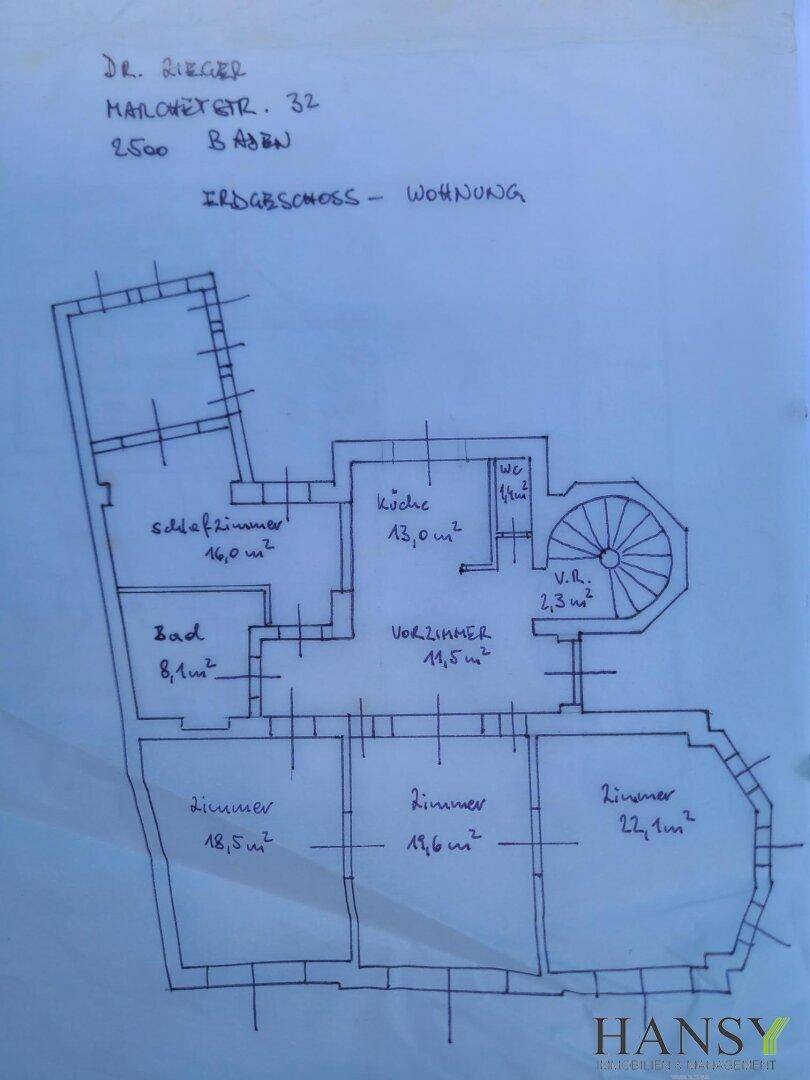 DR. ZIEGER
MARCHETSTR. 32
2500 BADEN
ERDGESCHOSS - WOHNUNG
WC
1,4 m²
Küche
13,0 m²
Schlafzimmer
16,0 m²
V.R.
2,3 m²
Bad
8,1 m²
VORZIMMER
11,5 m²
Zimmer
18,5 m²
Zimmer
19,6 m²
Zimmer
22,1 m²
HANSY
IMMOBILIEN & MANAGEMENT